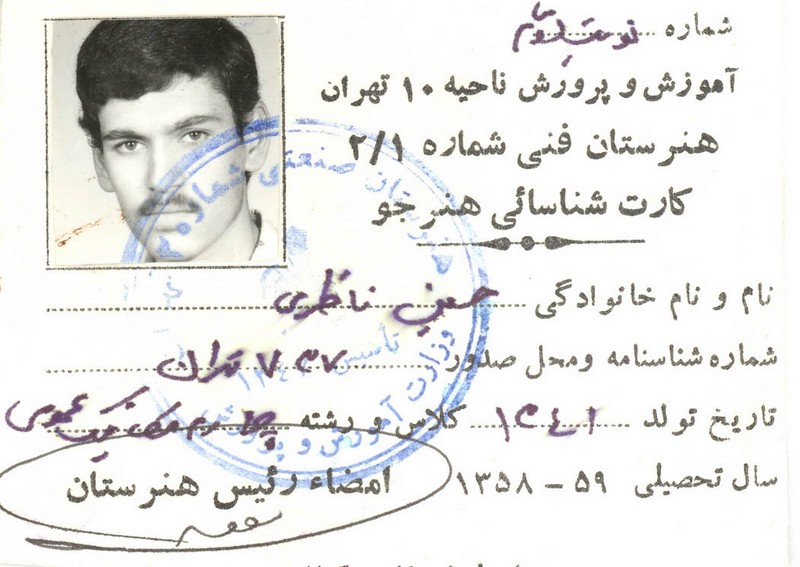 شماره نوبت دوم
آموزش و پرورش ناحیه ۱۰ تهران
هنرستان فنی شماره ۲/۱
کارت شناسائی هنرجو
نام و نام خانوادگی حسین ناظری
شماره شناسنامه ومحل صدور ۷۳۷ تهران
تاریخ تولد ۱۳۴۱ کلاس و رشته چهارم مکانیک عمومی
سال تحصیلی ۵۹ - ۱۳۵۸
امضاء رئیس هنرستان
هنرستان صنعتی شماره
تأسیس
وزارت آموزش و پرورش